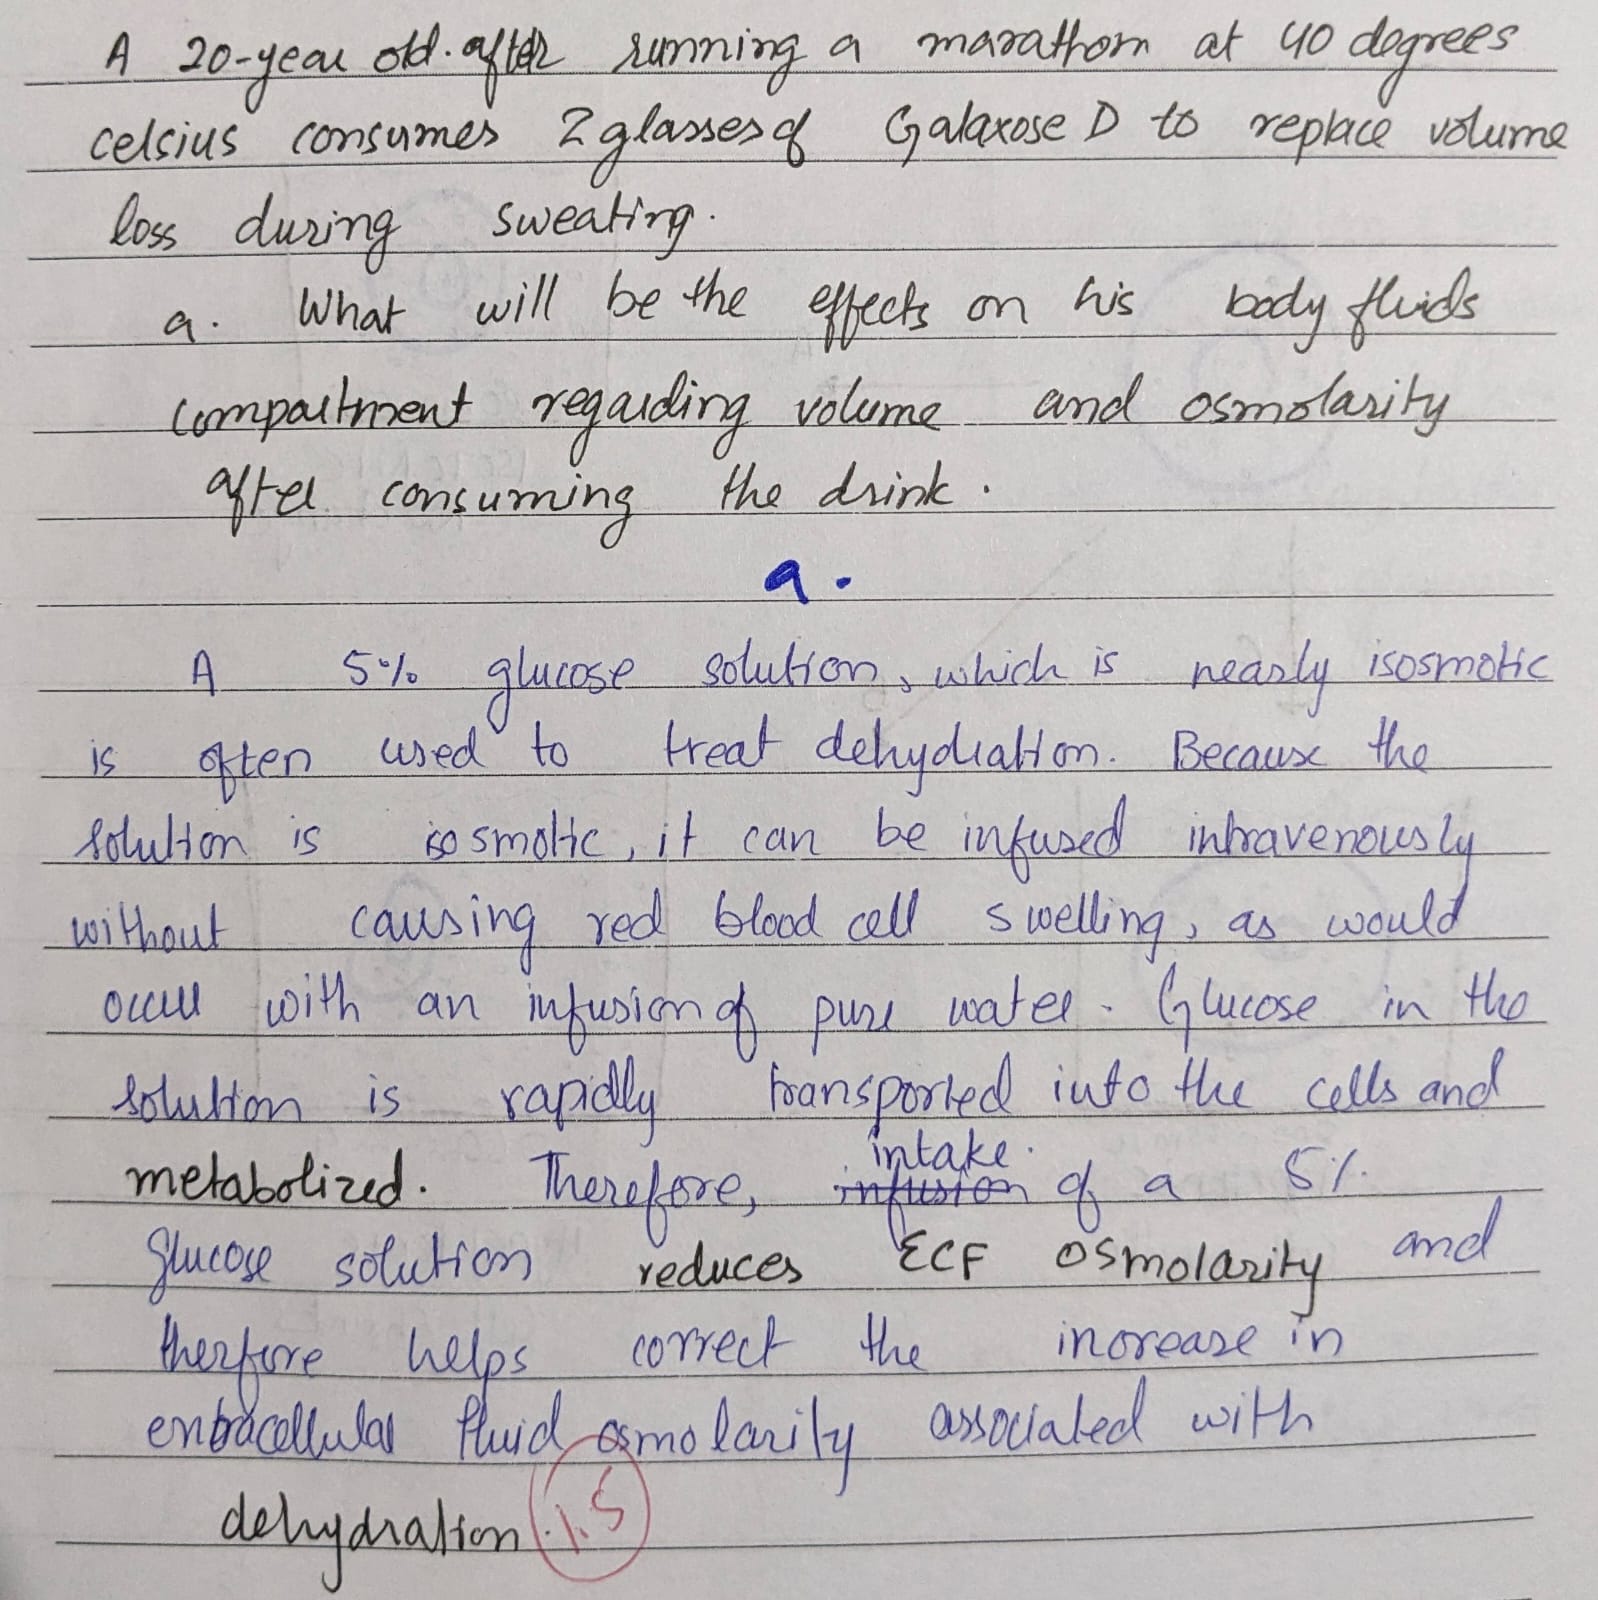 A 20-year old. after running a marathom at 40 degrees
celsius consumes 2 glasses of Galaxose D to replace volume
loss during sweating.
a. What will be the effects on his body fluids
compartment regarding volume and osmolarity
after consuming the drink.
a.
A 5% glucose solution, which is nearly isosmotic
is often used to treat dehydration. Because the
solution is isosmotic, it can be infused intravenously
without causing red blood cell swelling, as would
occur with an infusion of pure water. Glucose in the
solution is rapidly transported into the cells and
metabolized. Therefore, infusion intake. of a 5%
glucose solution reduces ECF osmolarity and
therfore helps correct the increase in
extracellular fluid osmolarity associated with
dehydration. 1.5